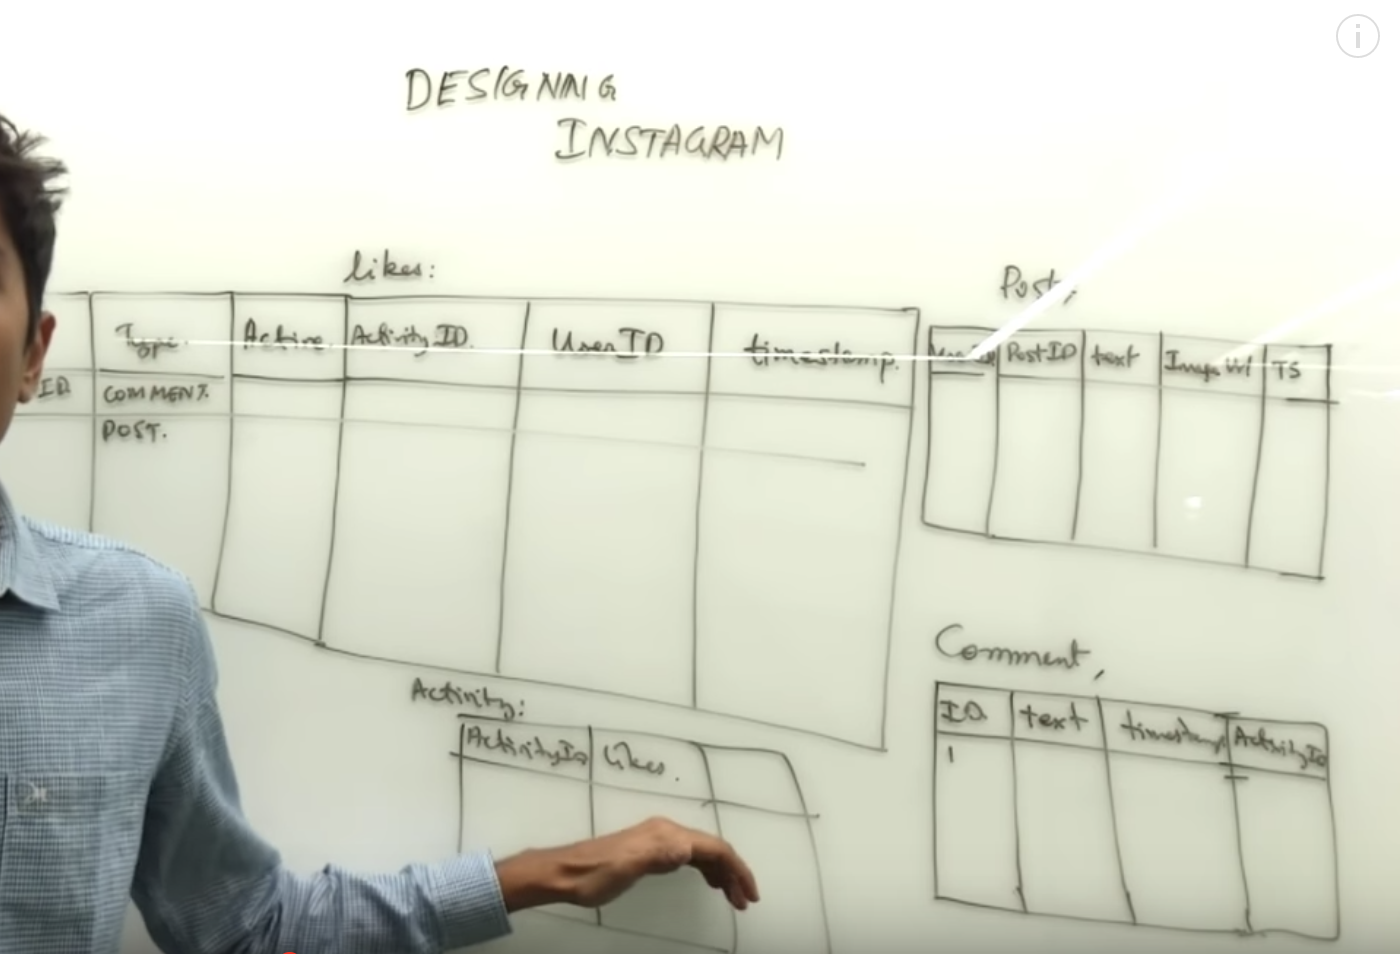 DESIGNING
INSTAGRAM
likes:
Type. Active. Activity ID. User ID timestamp.
ID COMMENT.
POST.
Post,
Post ID text Image Url TS
Activity:
Activity ID likes.
Comment,
ID text timestamp Activity ID
1